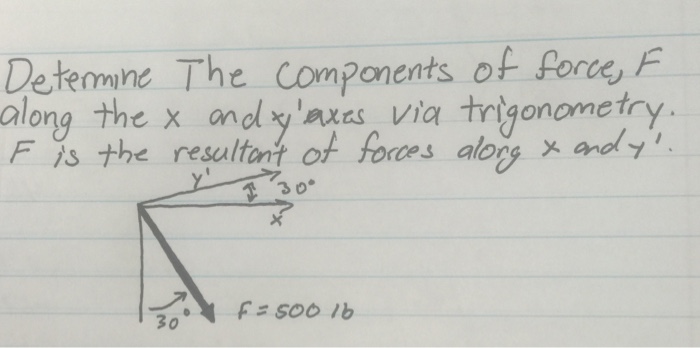 Determine The components of force, F
along the x and y' axes via trigonometry.
F is the resultant of forces along x and y'.
y'
30°
x
30°
F = 500 lb